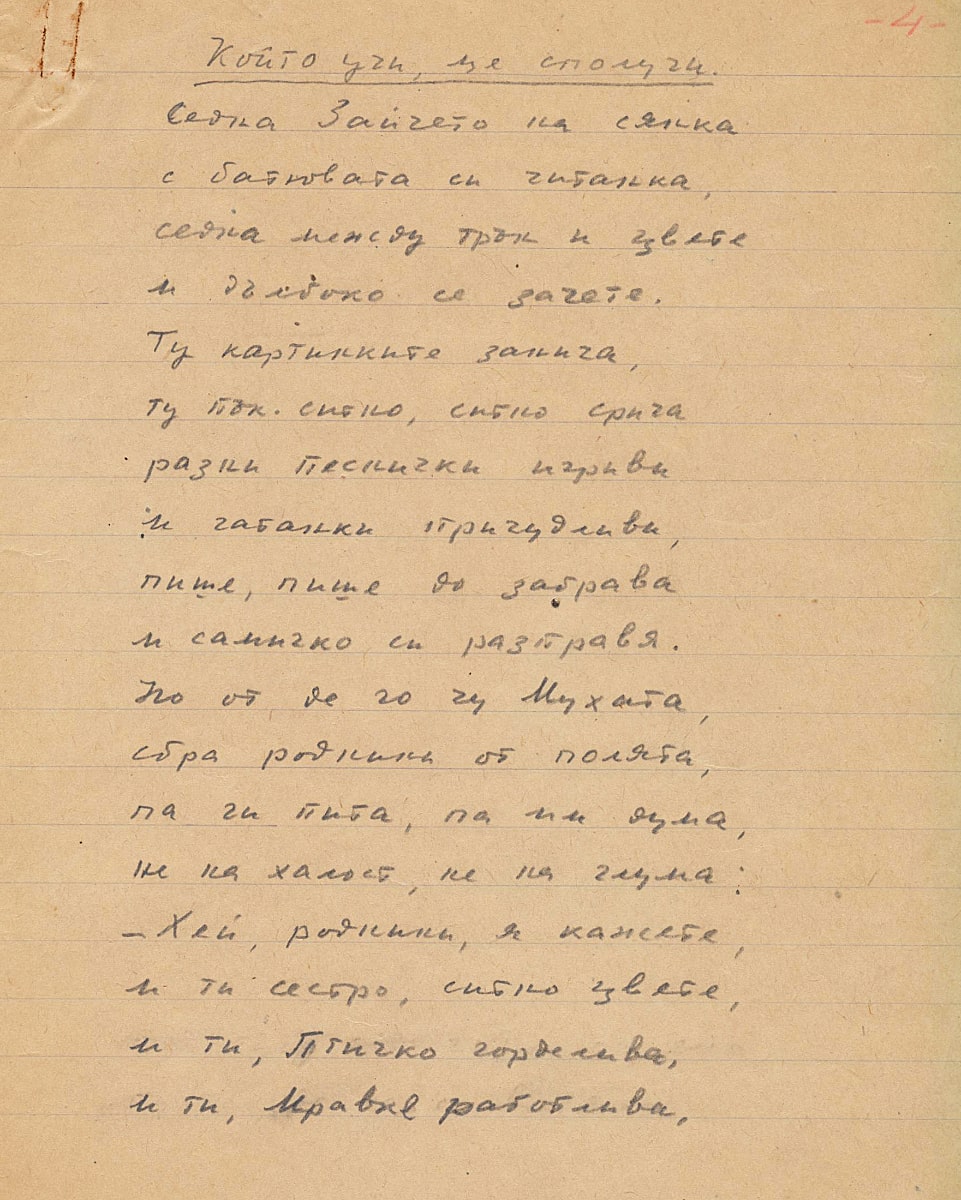 -4-
Който учи, ще сполучи.
Седна Зайчето на сянка
с батковата си читанка,
седна между трън и цвете
и дълбоко се зачете.
Ту картинките занича,
ту пък ситко, ситно срича
разни песнички игриви
и гатанки причудливи,
пише, пише до забрава
и самичко си разправя.
Но от де го чу Мухата,
сбра роднини от полята,
па ги пита, па им дума,
не на халост, не на глума:
– Хей, роднини, я кажете,
и ти сестро, ситно цвете,
и ти, Птичко горделива,
и ти, Мравке работлива,